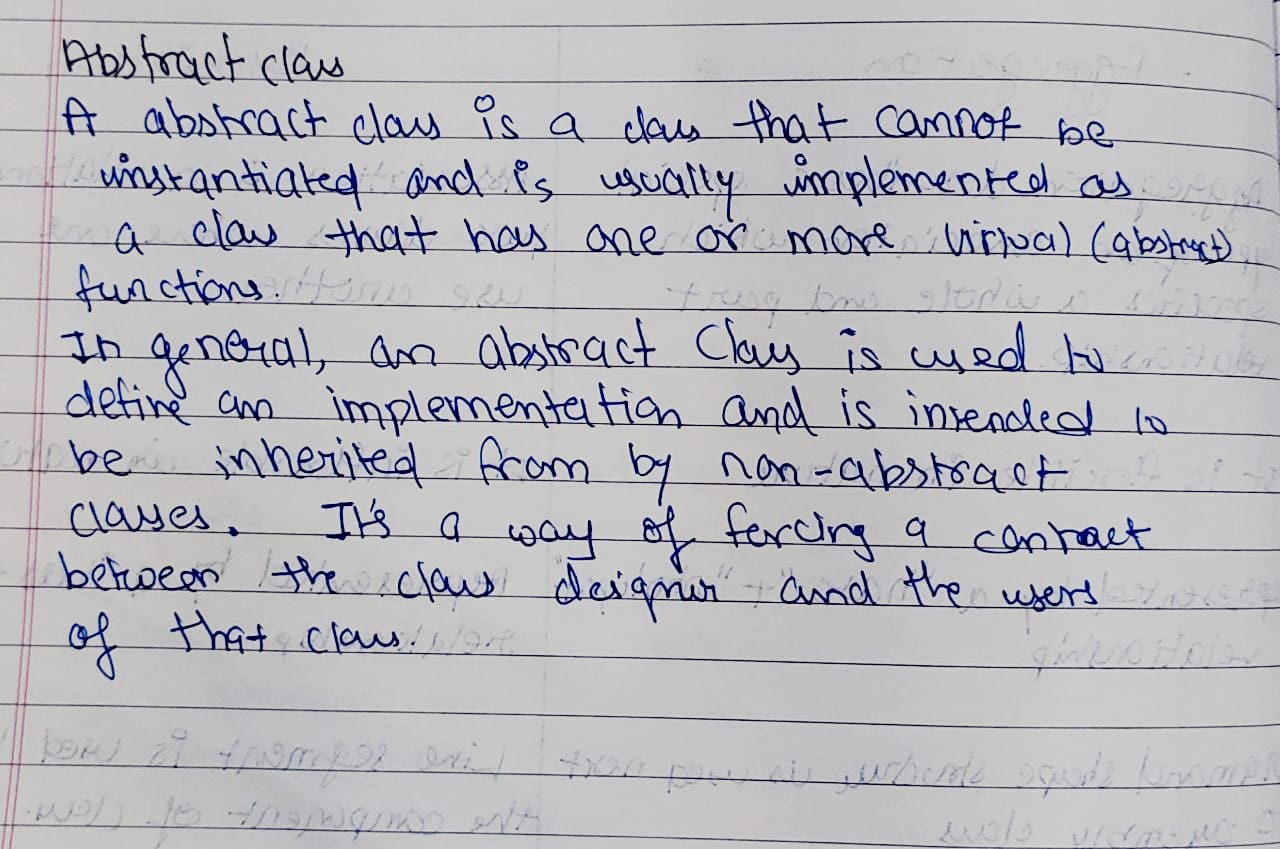 Abstract class
A abstract class is a class that cannot be
instantiated and is usually implemented as
a class that has one or more virtual (abstract)
functions.
In general, an abstract Class is used to
define an implementation and is intended to
be inherited from by non-abstract
classes. It's a way of forcing a contract
between the class designer and the users
of that class.